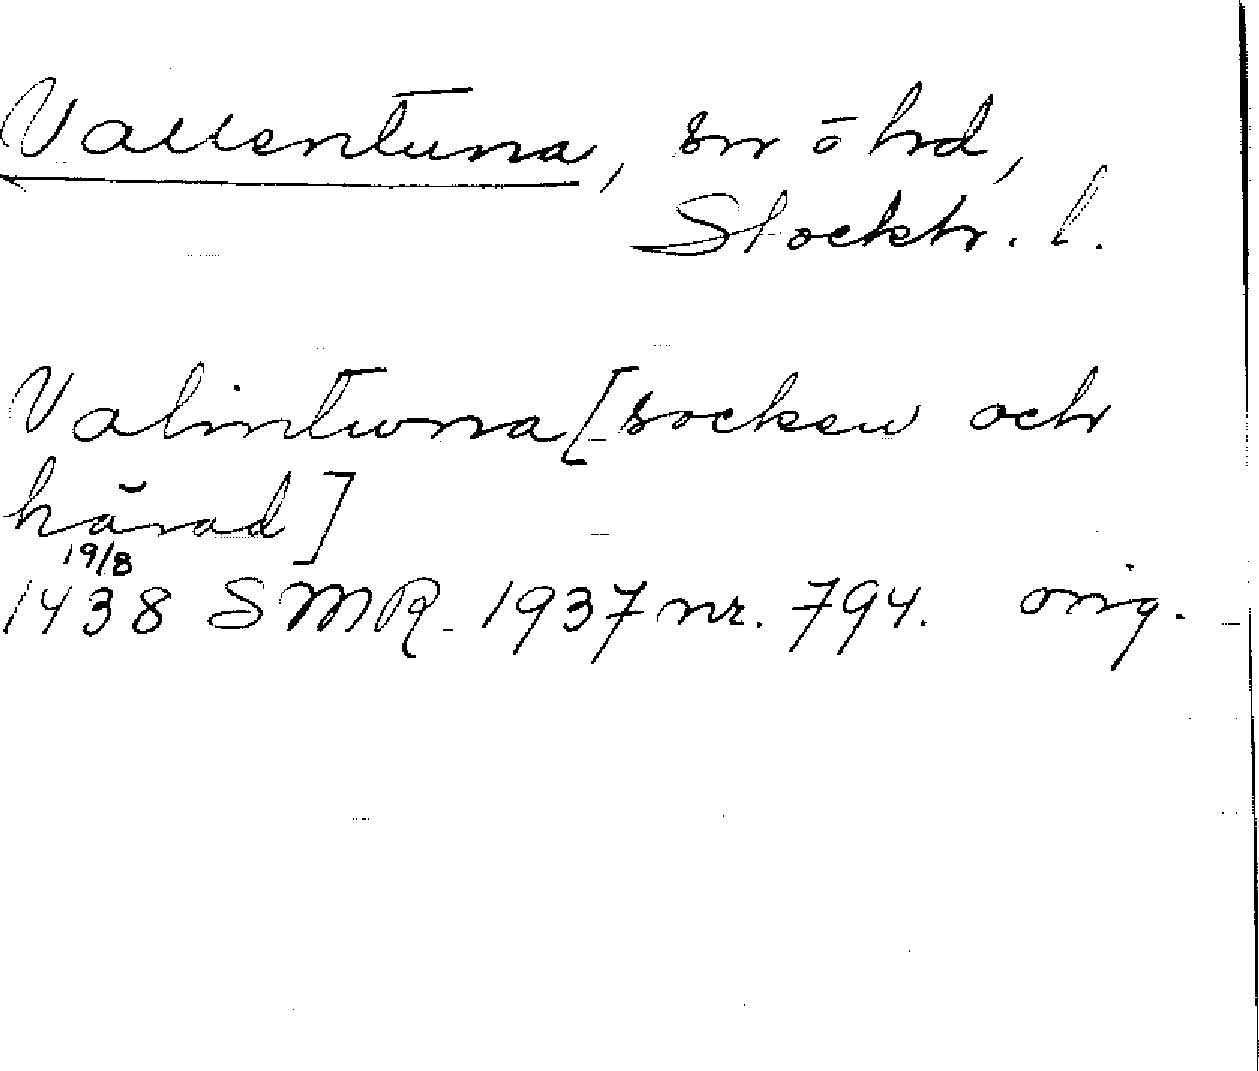 Vallentuna, sn o hd,
Stockh. l.
Valintuna [socken och
härad]
19/8
1438 SMR 1937 nr. 794. orig.